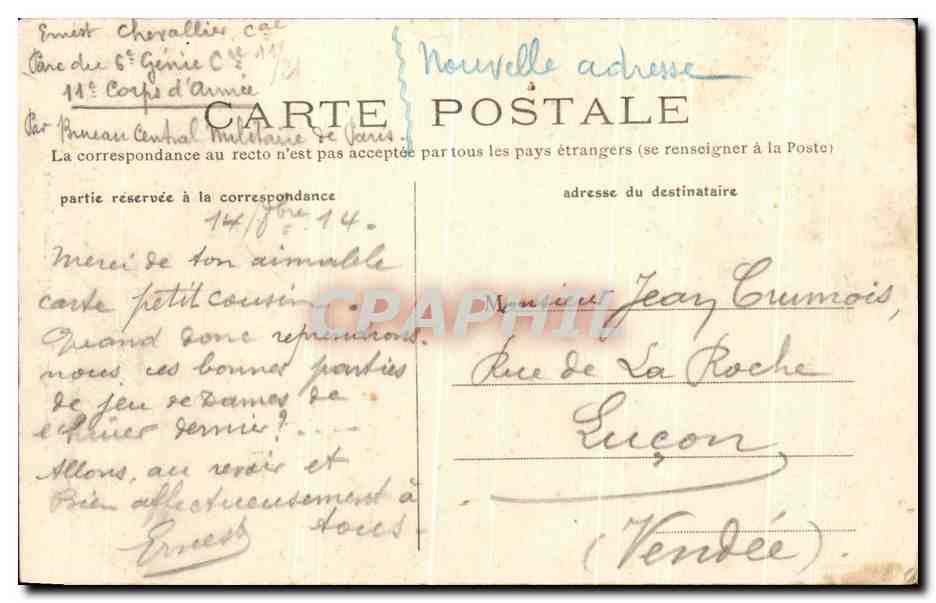 Ernest Chevallier Cal
Parc du 6e Génie Cie 11/21
11e Corps d'Armée
Par Bureau Central Militaire de Paris.
Nouvelle adresse
CARTE POSTALE
La correspondance au recto n'est pas acceptée par tous les pays étrangers (se renseigner à la Poste)
partie réservée à la correspondance
adresse du destinataire
14/ 14.
Merci de ton aimable
carte petit cousin.
Quand donc reprendrons
nous ces bonnes parties
de jeu de Dames de
l'hiver dernier? ....
Allons, au revoir et
Bien affectueusement à
tous-
Ernest
Monsieur Jean Crumois,
Rue de La Roche
Luçon
(Vendée).
CPAPHIL